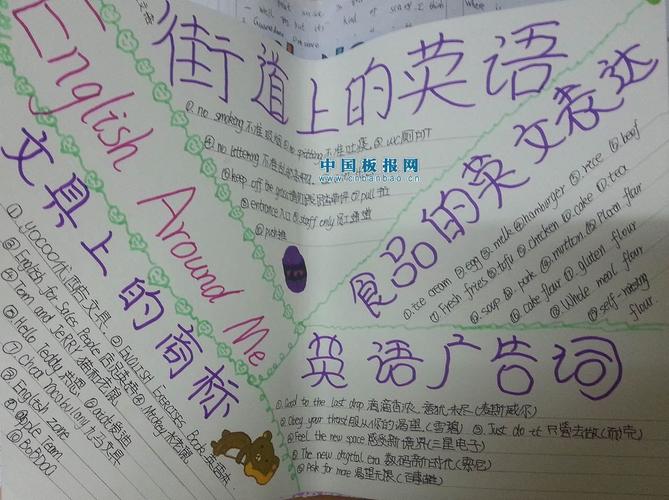 English Around Me
街道上的英语
①. no smoking 不准吸烟 ② no spitting 不准吐痰, ③ WC厕所
④ no littering 不准乱
⑤ keep off the grass ⑥ pull 拉
⑦ entrance 入口 ⑧ staff only
⑨ push推
中国板报网
www.chbanbao.cn
食品的英文表达
①. ice cream ② egg ③. milk ④ hamburger ⑤. rice ⑥. beef
⑦ Fresh fries ⑧ tofu ⑨ chicken ⑩ cake ⑪ tea
soup pork mutton Plain flour
cake flour gluten flour
Whole meal flour
self-raising flour
文具上的商标
①. yococo优酒吉文具. ② ENGLISH Exercises Book 英语本
③ English for Sales People 店员英语 ④ Mickey米老鼠
⑤ Tom and JeRRY猫和老鼠
⑥ Hello Teddy 泰迪
⑦. Cheal Vocabulary 文具
English zone
apple Team
BoBDOG
英语广告词
①. Good to the last drop 滴滴香浓 意犹未尽 (麦斯威尔)
② Obey your thirst 服从你的渴望 (雪碧) ③. Just do it 只管去做 (耐克)
④ Feel the new space 感受新境界 (三星电子)
⑤ The new digital era 数码新时代 (索尼)
⑥ Ask for more 渴望无限 (百事)